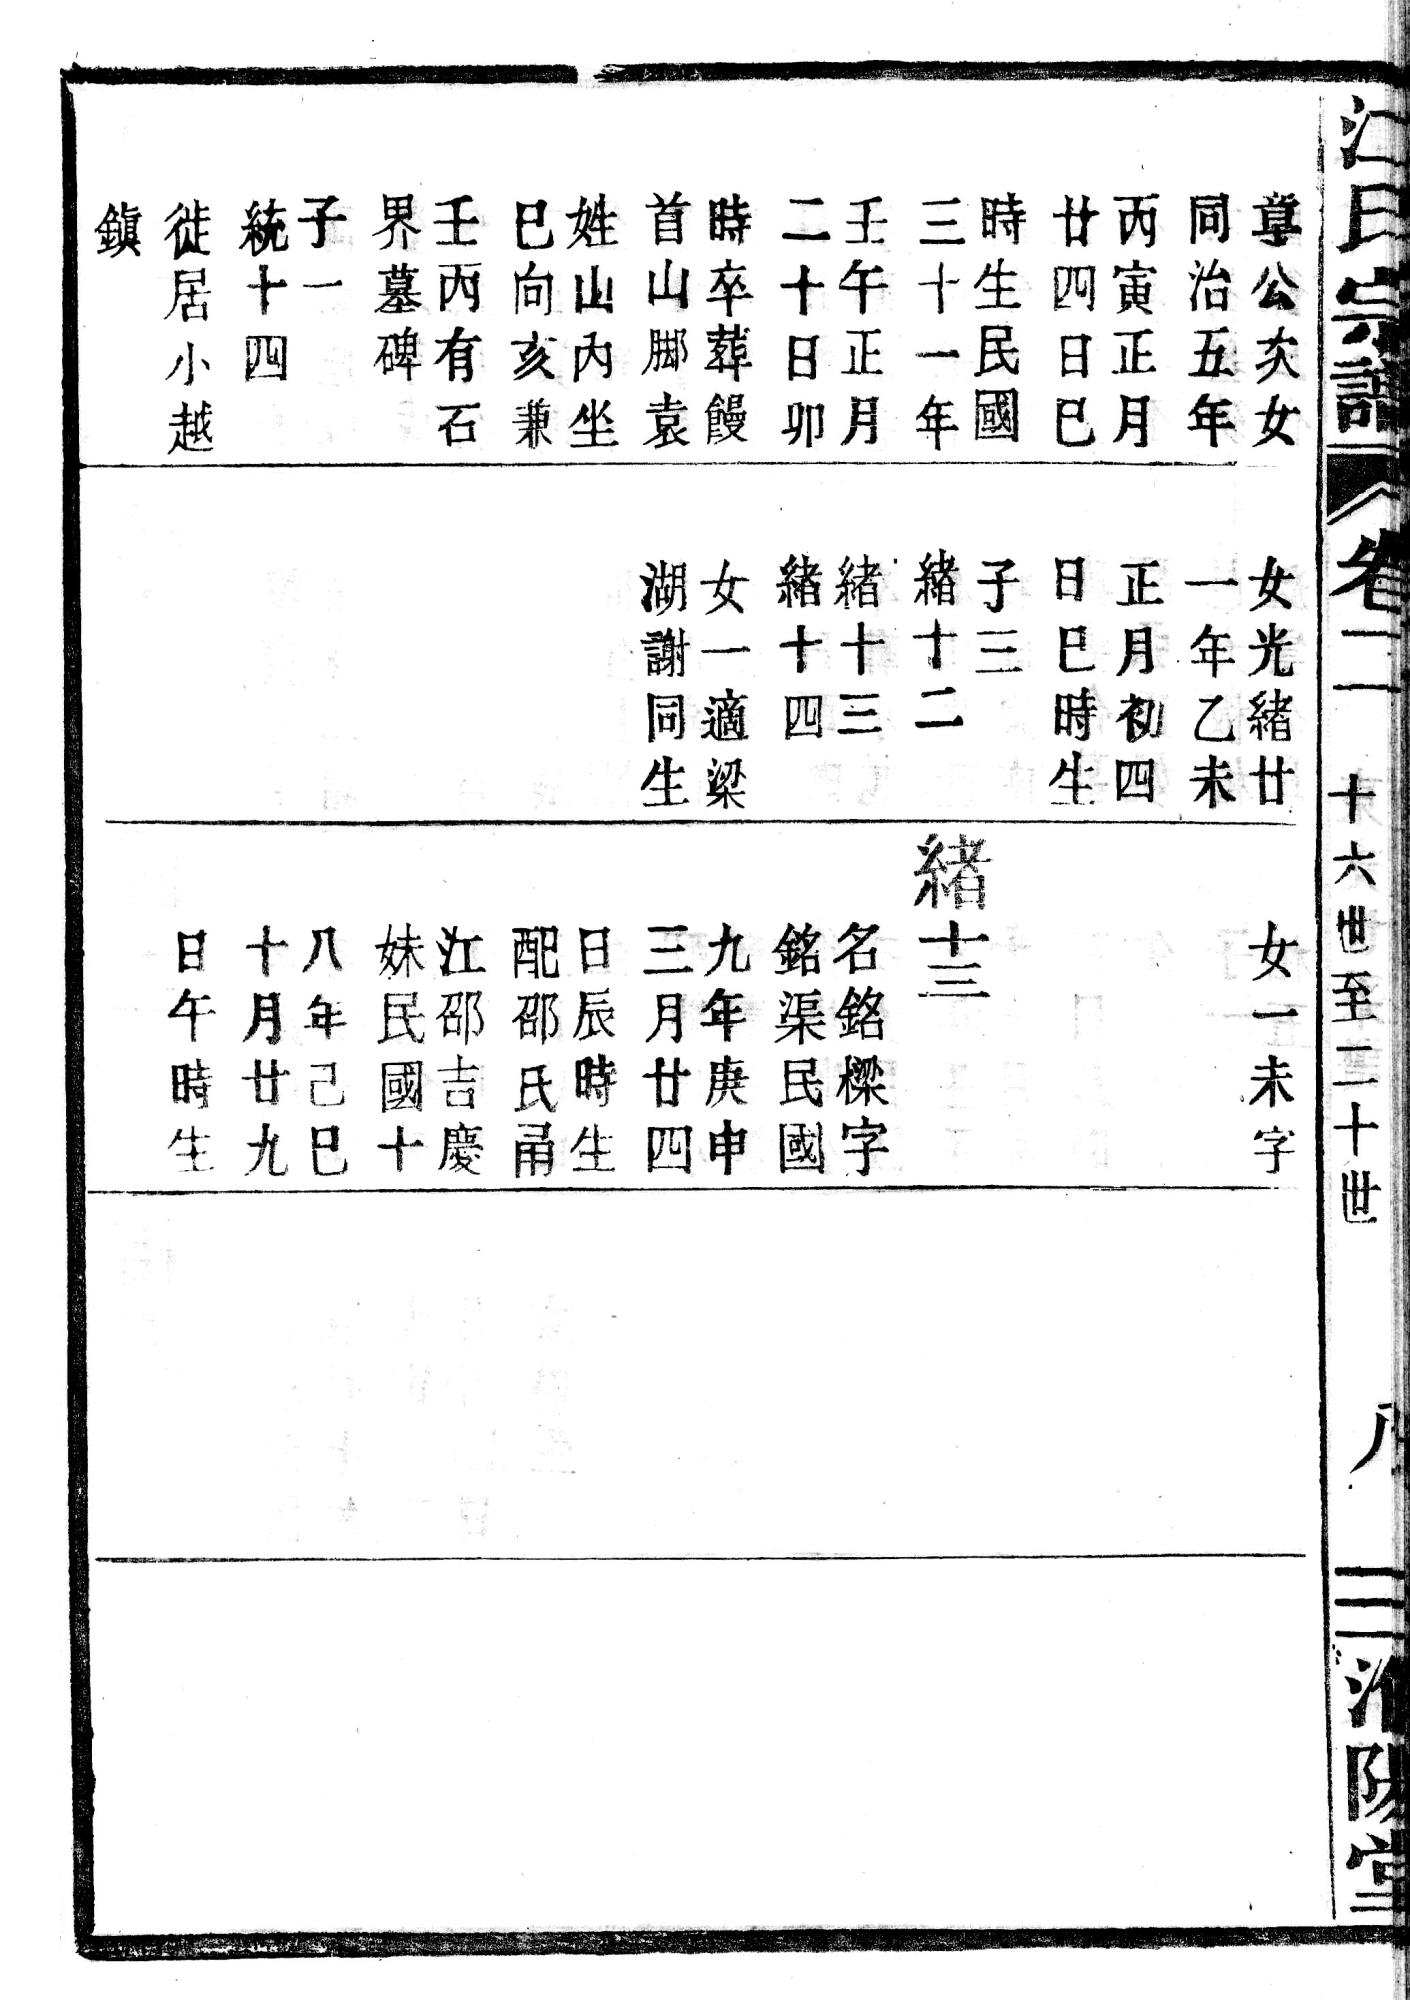 江氏宗譜
卷二
十六世至二十世
八
淮陽堂
章公次女
同治五年
丙寅正月
廿四日巳
時生民國
三十一年
壬午正月
二十日卯
時卒葬饅
首山脚袁
姓山內坐
巳向亥兼
壬丙有石
界墓碑
子一
統十四
徙居小越
鎮
女光緒廿
一年乙未
正月初四
日巳時生
子三
緒十二
緒十三
緒十四
女一適梁
湖謝同生
女一未字
緒十三
名銘樑字
銘渠民國
九年庚申
三月廿四
日辰時生
配邵氏甬
江邵吉慶
妹民國十
八年己巳
十月廿九
日午時生